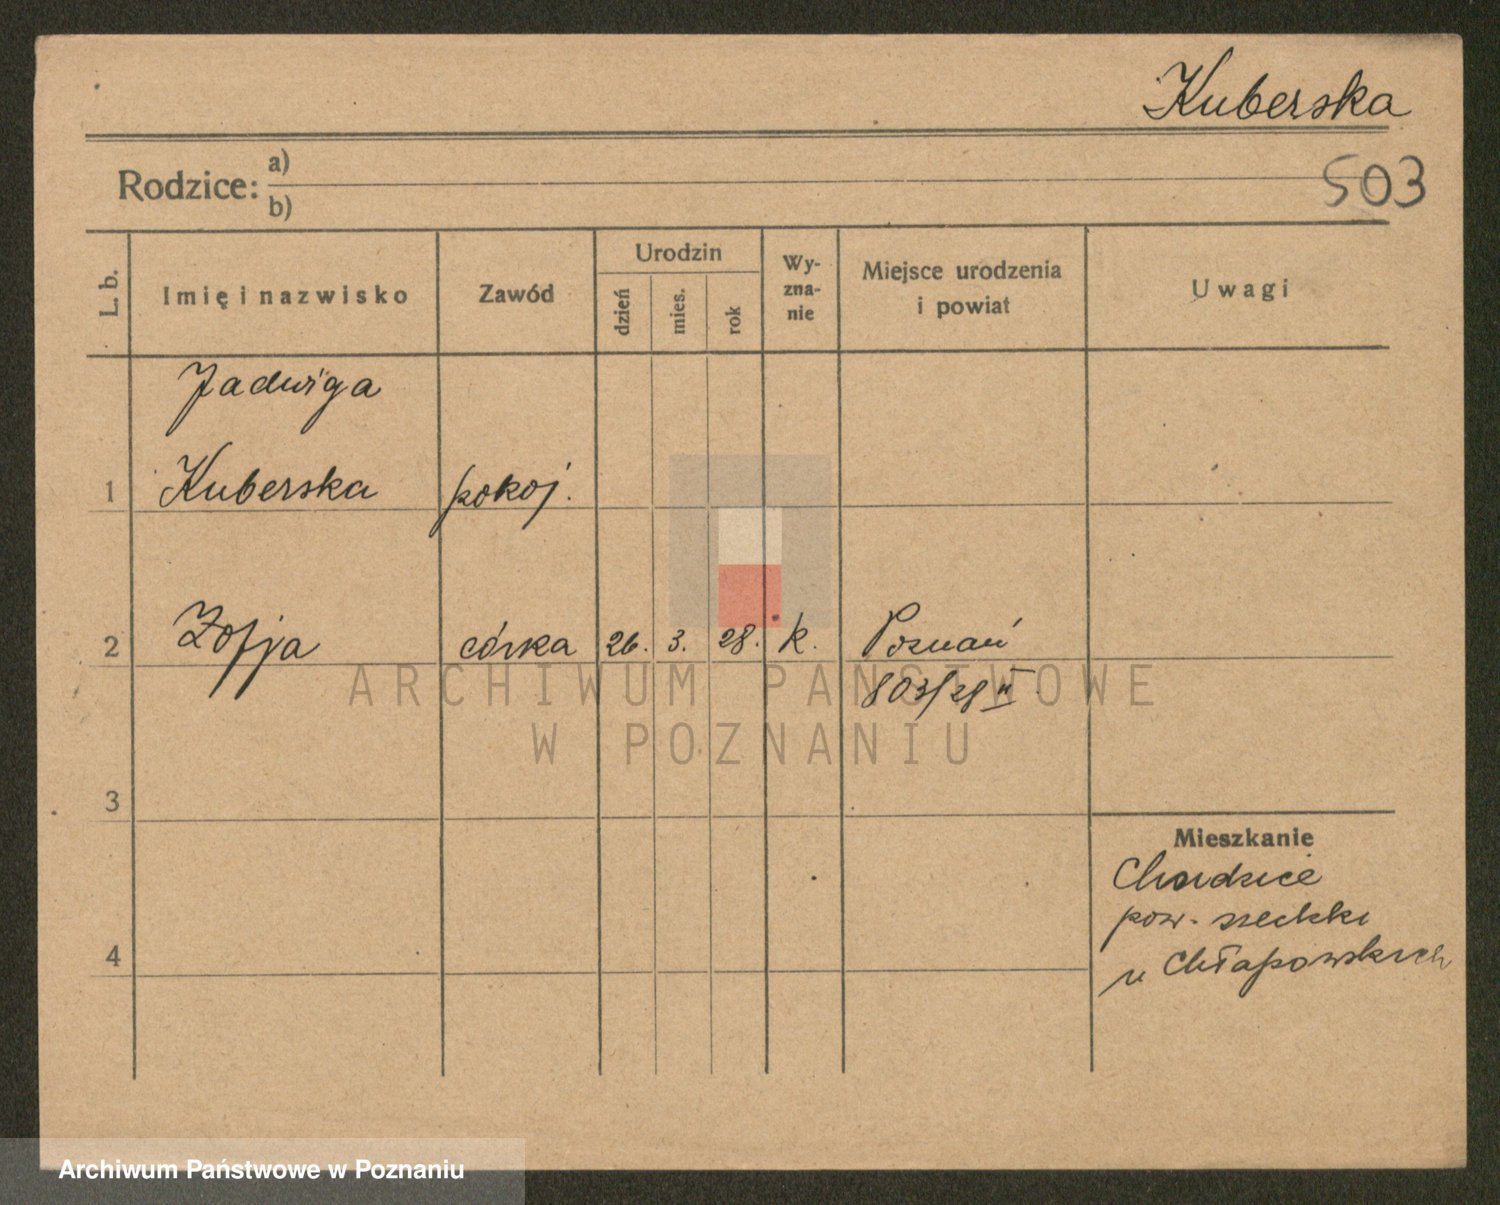 Kuberska
Rodzice: a)
b)
503
L. b.
Imię i nazwisko
Zawód
Urodzin
dzień
mies.
rok
Wy-
zna-
nie
Miejsce urodzenia
i powiat
Uwagi
Jadwiga
1 Kuberska pokoj.
2 Zofja córka 26. 3. 28. k. Poznań
803/28 II
3
4
Mieszkanie
pow.
u Chłapowskich
ARCHIWUM PAŃSTWOWE
W POZNANIU
Archiwum Państwowe w Poznaniu